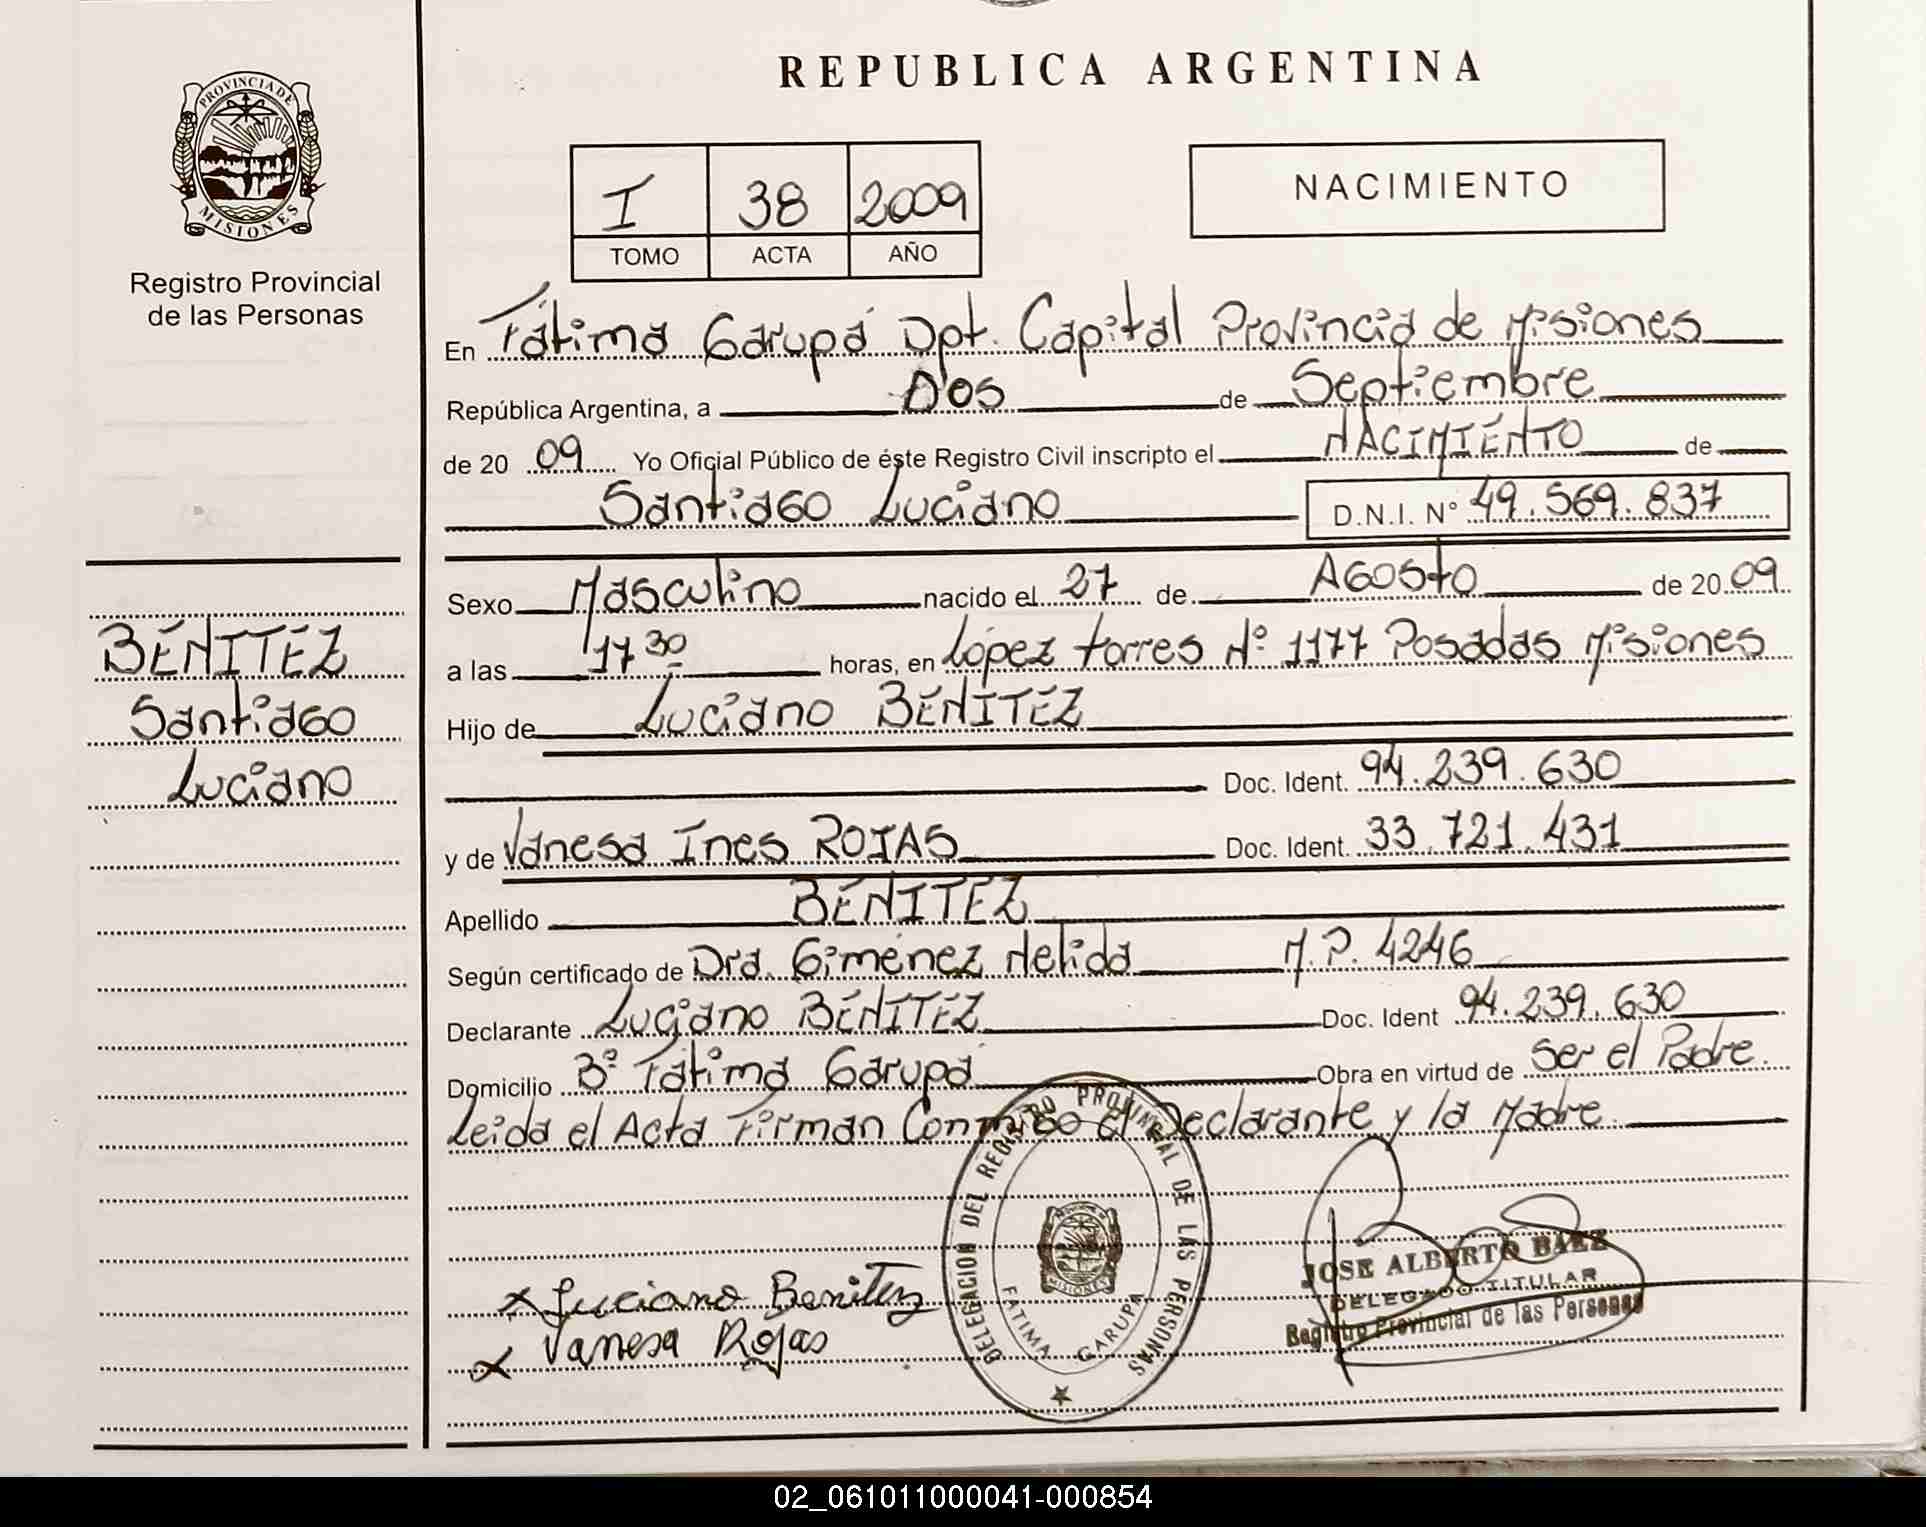 REPUBLICA ARGENTINA
PROVINCIA DE
MISIONES
Registro Provincial
de las Personas
I 38 2009
TOMO ACTA AÑO
NACIMIENTO
En Fátima Garupá Dpt. Capital Provincia de Misiones
República Argentina, a Dos de Septiembre
de 20 09 Yo Oficial Público de éste Registro Civil inscripto el NACIMIENTO de
Santiago Luciano D.N.I. N° 49.569.837
Sexo Masculino nacido el 27 de Agosto de 20 09
a las 17 30 horas, en López torres N° 1177 Posadas Misiones
Hijo de Luciano BENITEZ
Doc. Ident. 94.239.630
y de Vanesa Ines ROJAS Doc. Ident. 33.721.431
Apellido BENITEZ
Según certificado de Dra. Gimenez Nelida M.P. 4246
Declarante Luciano BENITEZ Doc. Ident 94.239.630
Domicilio B° Fátima Garupá Obra en virtud de Ser el Padre.
Leida el Acta Firman Conmigo el Declarante y la Madre.
BENITEZ
Santiago
Luciano
Luciano Benitez
Vanesa Rojas
DELEGACION DEL REGISTRO PROVINCIAL DE LAS PERSONAS
MISIONES
FATIMA GARUPA
JOSE ALBERTO BAEZ
DELEGADO TITULAR
Registro Provincial de las Personas
02_061011000041-000854